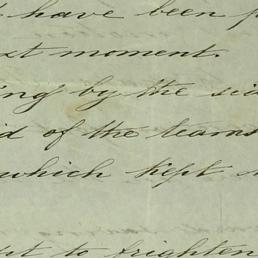 have been
moment.
ing by the
of the teams
which kept
to brighten